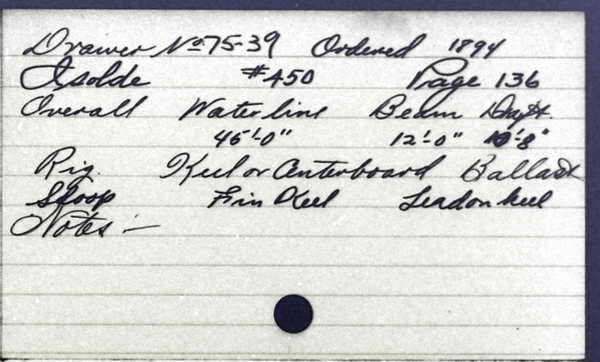 Drawer No 75-39 Ordered 1894
Isolde #450 Page 136
Overall Waterline Beam Draft.
45'-0" 12'-0" 10'-8"
Rig. Keel or Centerboard Ballast
Sloop Fin Keel Lead on keel
Notes —